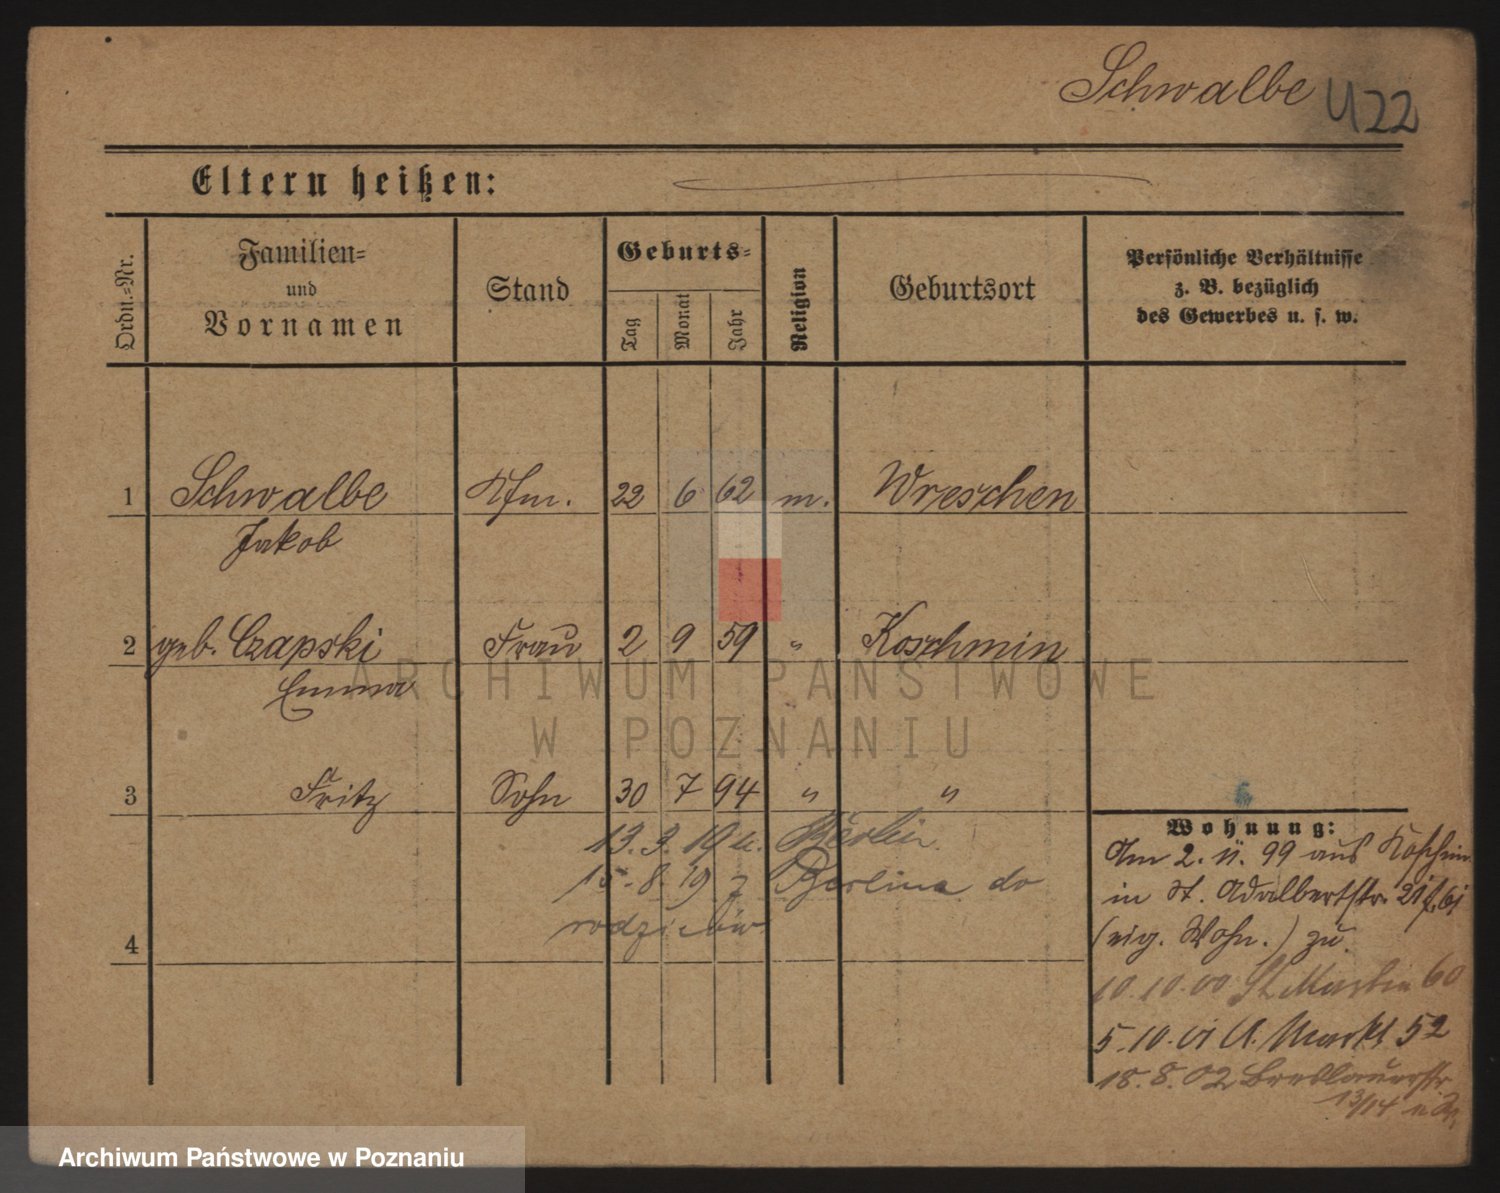 Schwalbe U22
Eltern heißen:
Ordn.-Nr.
Familien-
und
Vornamen
Stand
Geburts-
Tag
Monat
Jahr
Religion
Geburtsort
Persönliche Verhältnisse
z. B. bezüglich
des Gewerbes u. s. w.
1 Schwalbe Kfm. 22 6 62 m. Wreschen
Jakob
2 geb. Czapski Frau 2 9 59 " Koschmin
Emma
3 Fritz Sohn 30 7 94 " "
13. 3. 19 Berlin
15. 8. 19 z Berlina do
rodziców
4
Wohnung:
Am 2. 11. 99 aus Koschmin
in St. Adalbertstr. 21
(eig. Wohn.) zu.
10.10.00 St Martin 60
5.10.01 A. Markt 52
18.8.02 Breslauerstr
13/14
ARCHIWUM PAŃSTWOWE
W POZNANIU
Archiwum Państwowe w Poznaniu